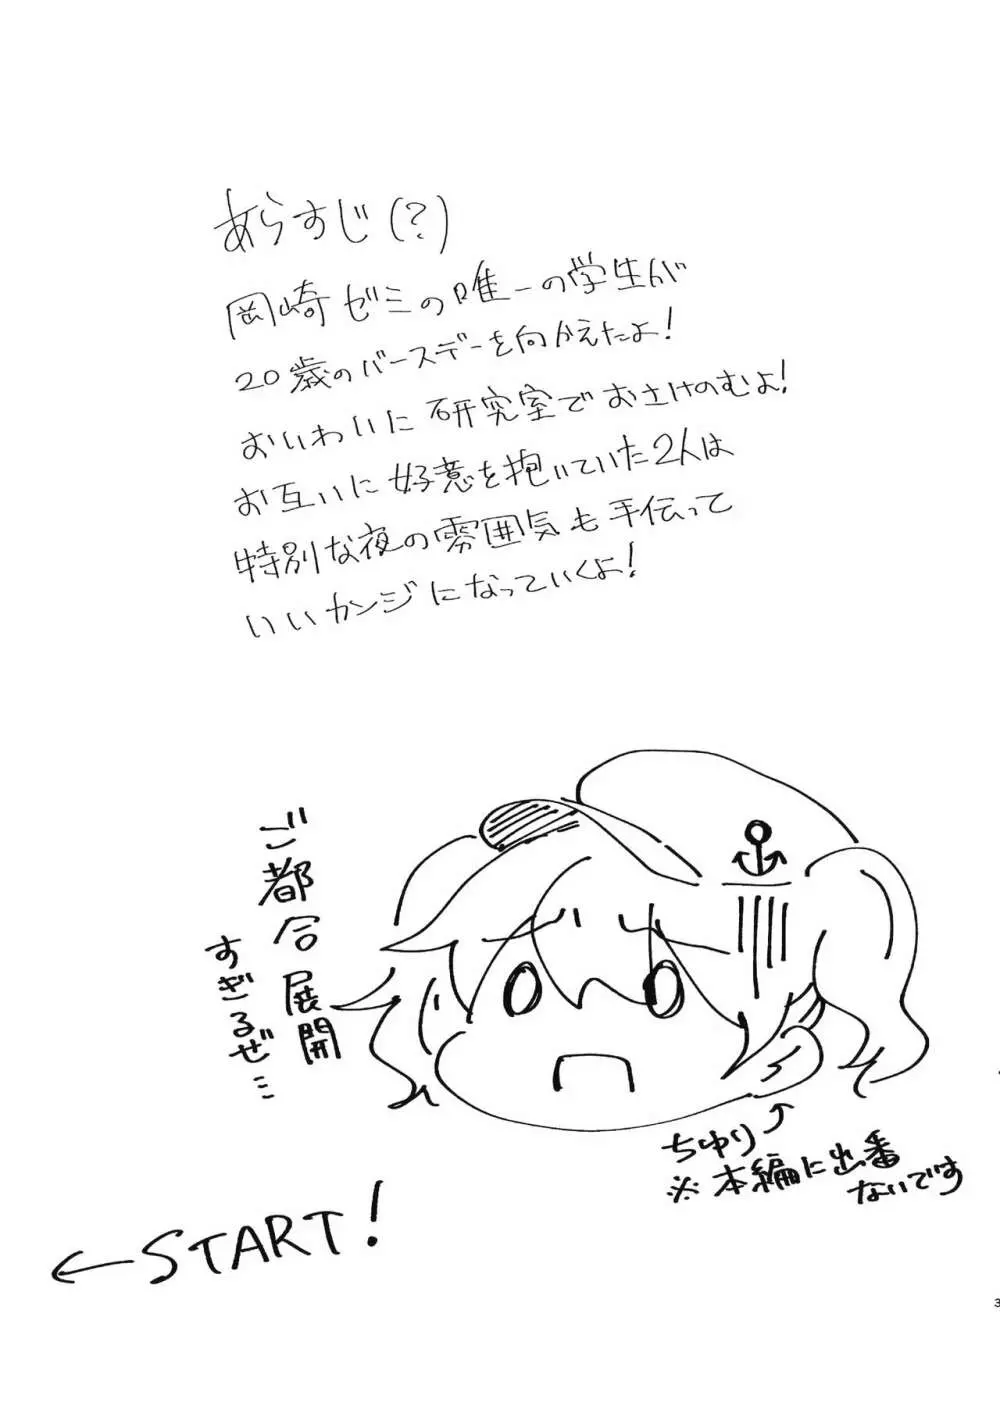 あらすじ(?)
岡崎ゼミの唯一の学生が
20歳のバースデーを向かえたよ!
おいわいに研究室でおさけのむよ!
お互いに好意を抱いていた2人は
特別な夜の雰囲気も手伝って
いいカンジになっていくよ!
ご都合展開
すぎるぜ…
ちゆり
※本編に出番
ないです
←START!
3